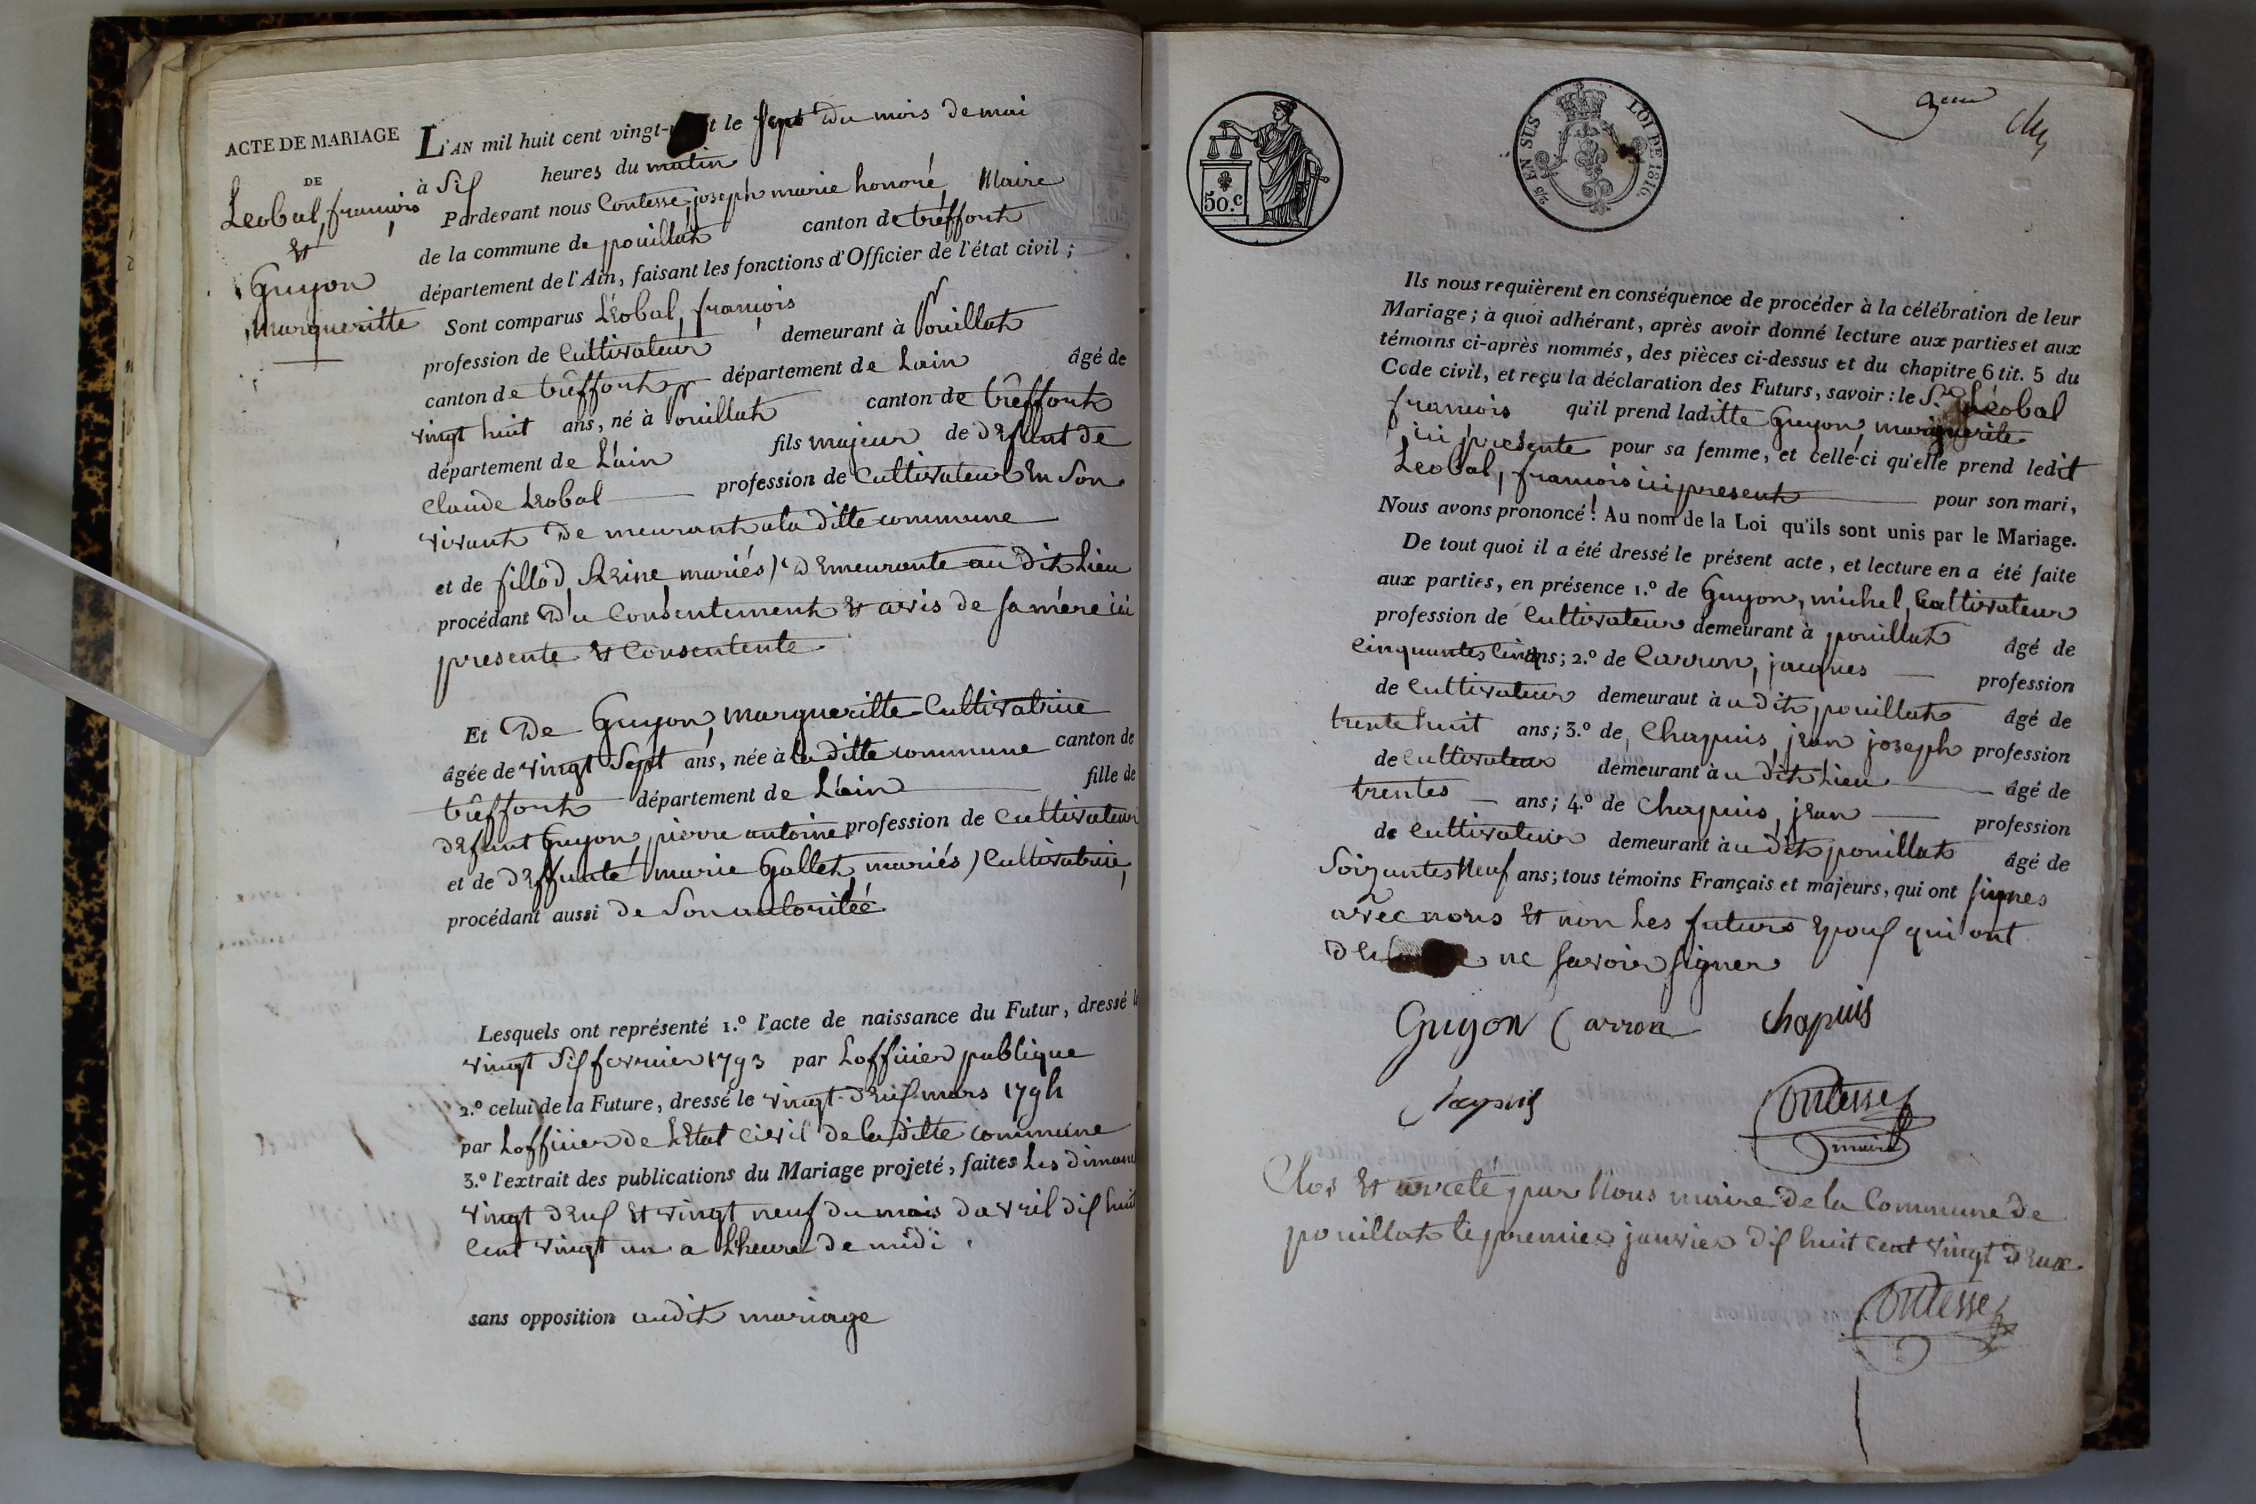 ACTE DE MARIAGE
DE
Leobal, francois
et
Guyon
margueritte
L'AN mil huit cent vingt- le sept du mois de mai
à Six heures du matin
Pardevant nous Contesse, joseph marie honoré Maire
de la commune de pouillat canton de trêffort
département de l'Ain, faisant les fonctions d'Officier de l'état civil;
Sont comparus Léobal, francois
profession de Cultivateur demeurant à Pouillat
canton de trêffort département de Lain âgé de
vingt huit ans, né à Pouillat canton de trêffort
département de L'ain fils majeur de defunt de
Claude Leobal profession de Cultivateur En Son
vivant De meurant a la ditte commune
et de fillod, Reine mariés) Demeurante au dit Lieu
procédant Du Consentement et avis de Sa mère ici
presente et Consentente
Et De Guyon, margueritte Cultivatrice
âgée de vingt Sept ans, née à la ditte commune canton de
trêffort département de L'ain fille de
defunt Guyon, pierre antoine profession de Cultivateur
et de deffunte marie Gallet, mariés) Cultivatrice,
procédant aussi de Son autoritéé
Lesquels ont représenté 1.º l'acte de naissance du Futur, dressé le
vingt Six fevrier 1793 par Lofficier publique
2.º celui de la Future, dressé le vingt-deux mars 1794
par Lofficier de L'Etat Civil de la ditte commune
3.º l'extrait des publications du Mariage projeté, faites Les diman
vingt deux et vingt neuf du mois davril dix huit
Cent vingt un a L'heure de midi.
sans opposition audit mariage
50.c
2/5 EN SUS LOI DE 1816.
Ils nous requièrent en conséquence de procéder à la célébration de leur
Mariage; à quoi adhérant, après avoir donné lecture aux parties et aux
témoins ci-après nommés, des pièces ci-dessus et du chapitre 6 tit. 5 du
Code civil, et reçu la déclaration des Futurs, savoir: le S.r Léobal
francois qu'il prend laditte Guyon, marguerite
ici presente pour sa femme, et celle-ci qu'elle prend ledit
Leobal, francois ici present pour son mari,
Nous avons prononcé! Au nom de la Loi qu'ils sont unis par le Mariage.
De tout quoi il a été dressé le présent acte, et lecture en a été faite
aux parties, en présence 1.º de Guyon, michel, Cultivateur
profession de Cultivateur demeurant à pouillat âgé de
Cinquantes Cinq ans; 2.º de Carron, jacques profession
de Cultivateur demeuraut à u dit pouillat âgé de
trente huit ans; 3.º de Chapuis, jean joseph profession
de Cultivateur demeurant à u dit Lieu âgé de
trentes ans; 4.º de Chapuis, jean profession
de Cultivateur demeurant à u dit pouillat âgé de
Soizantes Neuf ans; tous témoins Français et majeurs, qui ont signes
avec nous et non Les futurs Epoux qui ont
ne savoir signer
Guyon Carron Chapuis
Chapuis Contesse
maire
Clos et arrêté par Nous maire de la Commune de
pouillat le premier janvier dix huit Cent vingt deux
Contesse